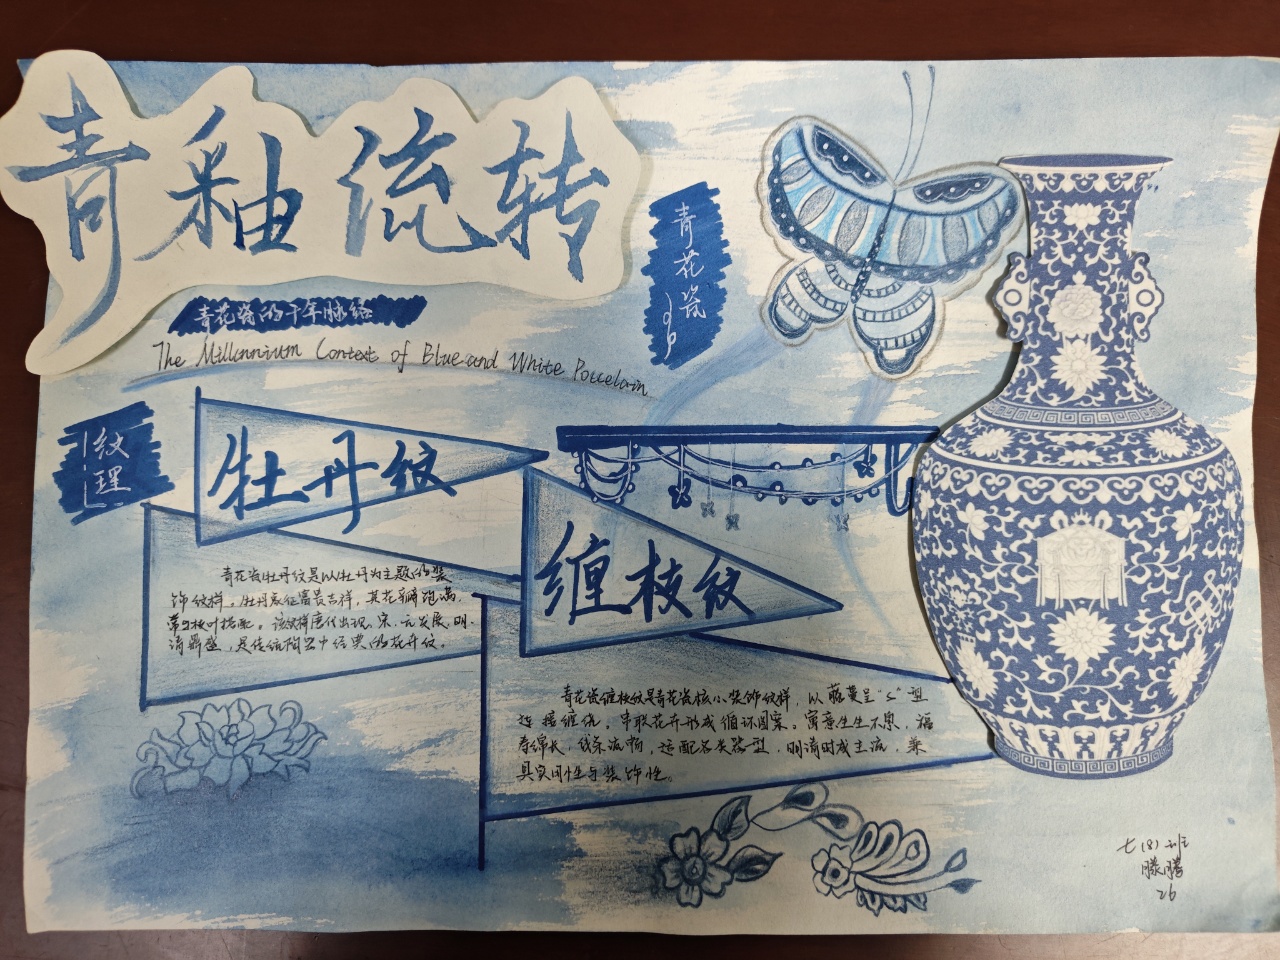 青釉流转
青花瓷的千年脉络
The Millennium Context of Blue and White Porcelain
青花瓷
纹理
牡丹纹
青花瓷牡丹纹是以牡丹为主题的装
饰纹样。牡丹象征富贵吉祥，其花瓣饱满，
常与枝叶搭配。该纹样唐代出现，宋、元发展，明、
清鼎盛，是传统陶瓷中经典的花卉纹。
缠枝纹
青花瓷缠枝纹是青花瓷核心装饰纹样，以藤蔓呈“S”型
连接缠绕。串联花卉形成循环图案。寓意生生不息，福
寿绵长，线条流畅，适配各类器型，明清时成主流，兼
具实用性与装饰性。
七（8）班
滕腾
26